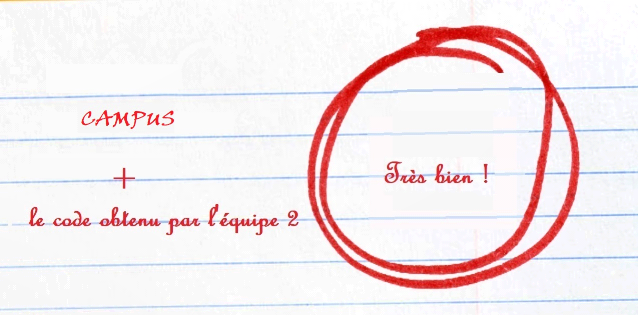 CAMPUS
+
le code obtenu par l'équipe 2
Très bien !